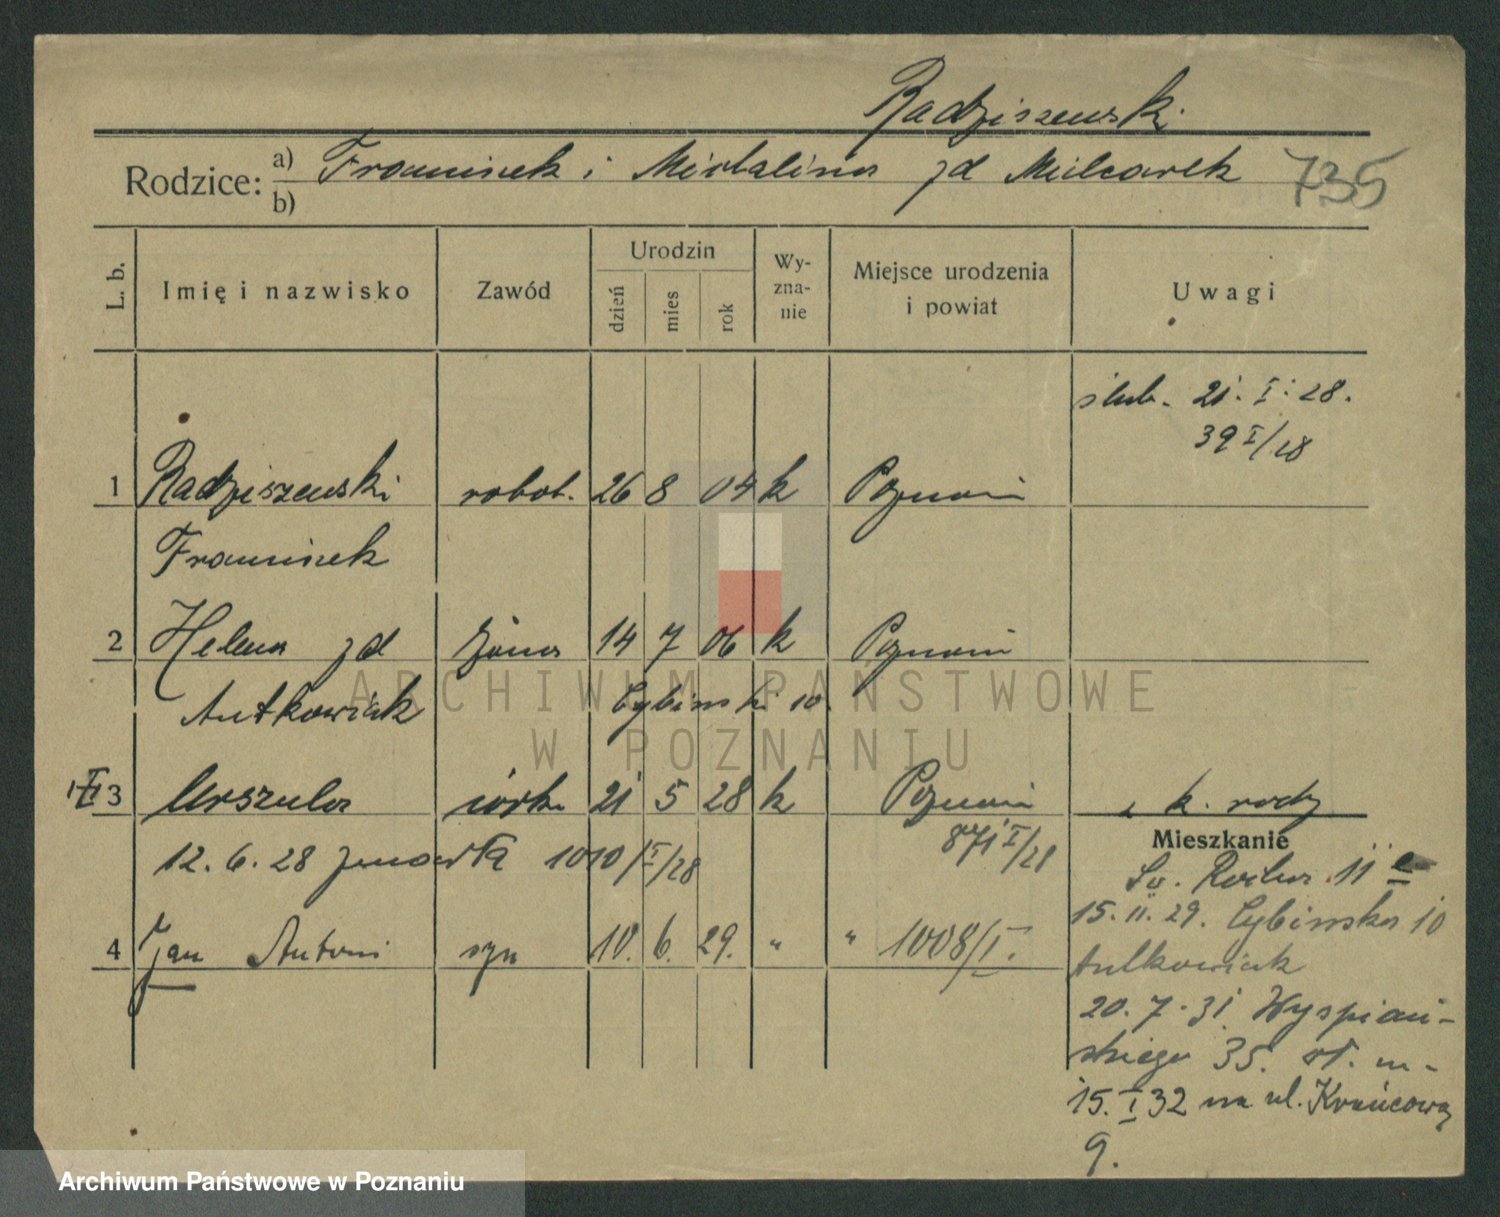 Radziszewski
Rodzice: a) Franciszek i Michalina zd Mielcarek 735
b)
L. b. Imię i nazwisko Zawód Urodzin dzień mies rok Wyznanie Miejsce urodzenia i powiat Uwagi
ślub. 21. I. 28.
39 I/28
1 Radziszewski robot. 26 8 04 k Poznań
Franciszek
2 Helena zd żona 14 7 06 k Poznań
Antkowiak Cybińska 10.
3 Urszula córka 21 5 28 k Poznań k. rodz
871 I/28
12. 6. 28 zmarła 1010/I/28
Mieszkanie
Św. Rocha 11
4 Jan Antoni syn 10. 6. 29. " " 1008/I.
15. II. 29. Cybińska 10
Antkowiak
20. 7. 31 Wyspiań-
skiego 35. st. m-
15. I 32 na ul. Krańcową
9.
ARCHIWUM PAŃSTWOWE
W POZNANIU
Archiwum Państwowe w Poznaniu